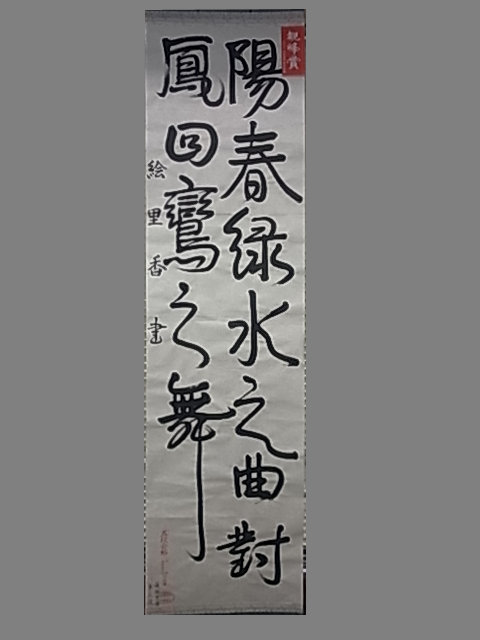 陽春緑水之曲對
鳳回鸞之舞
絵里香書